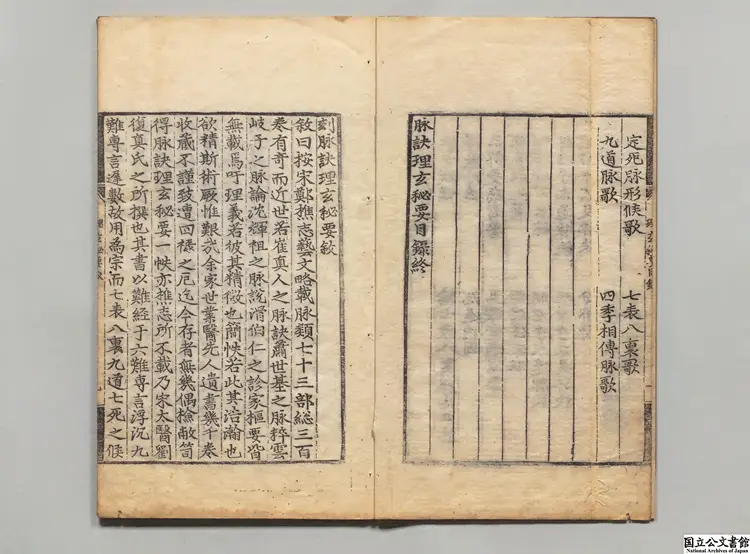 定死脉形候歌　七表八裏歌
九道脉歌　四季相傳脉歌
脉訣理玄秘要目錄終
刻脉訣理玄秘要敘
敘曰按宋鄭樵志藝文略載脉類七十三部総三百
卷有奇而近世若崔真人之脉訣蕭世基之脉粹雲
岐子之脉論沈輝祖之脉說滑伯仁之診家樞要皆
無載焉吁理義若彼其精微也簡帙若此其浩瀚也
欲精斯術厥惟艱哉余家世業醫先人遺書幾千卷
收藏不謹致遭回祿之厄迄今存者無幾偶檢敝笥
得脉訣理玄秘要一帙亦樵志所不載乃宋太醫劉
復真氏之所撰也其書以難經于六難専言浮沉九
難専言遲數故用為宗而七表八裏九道七死之候
国立公文書館
National Archives of Japan